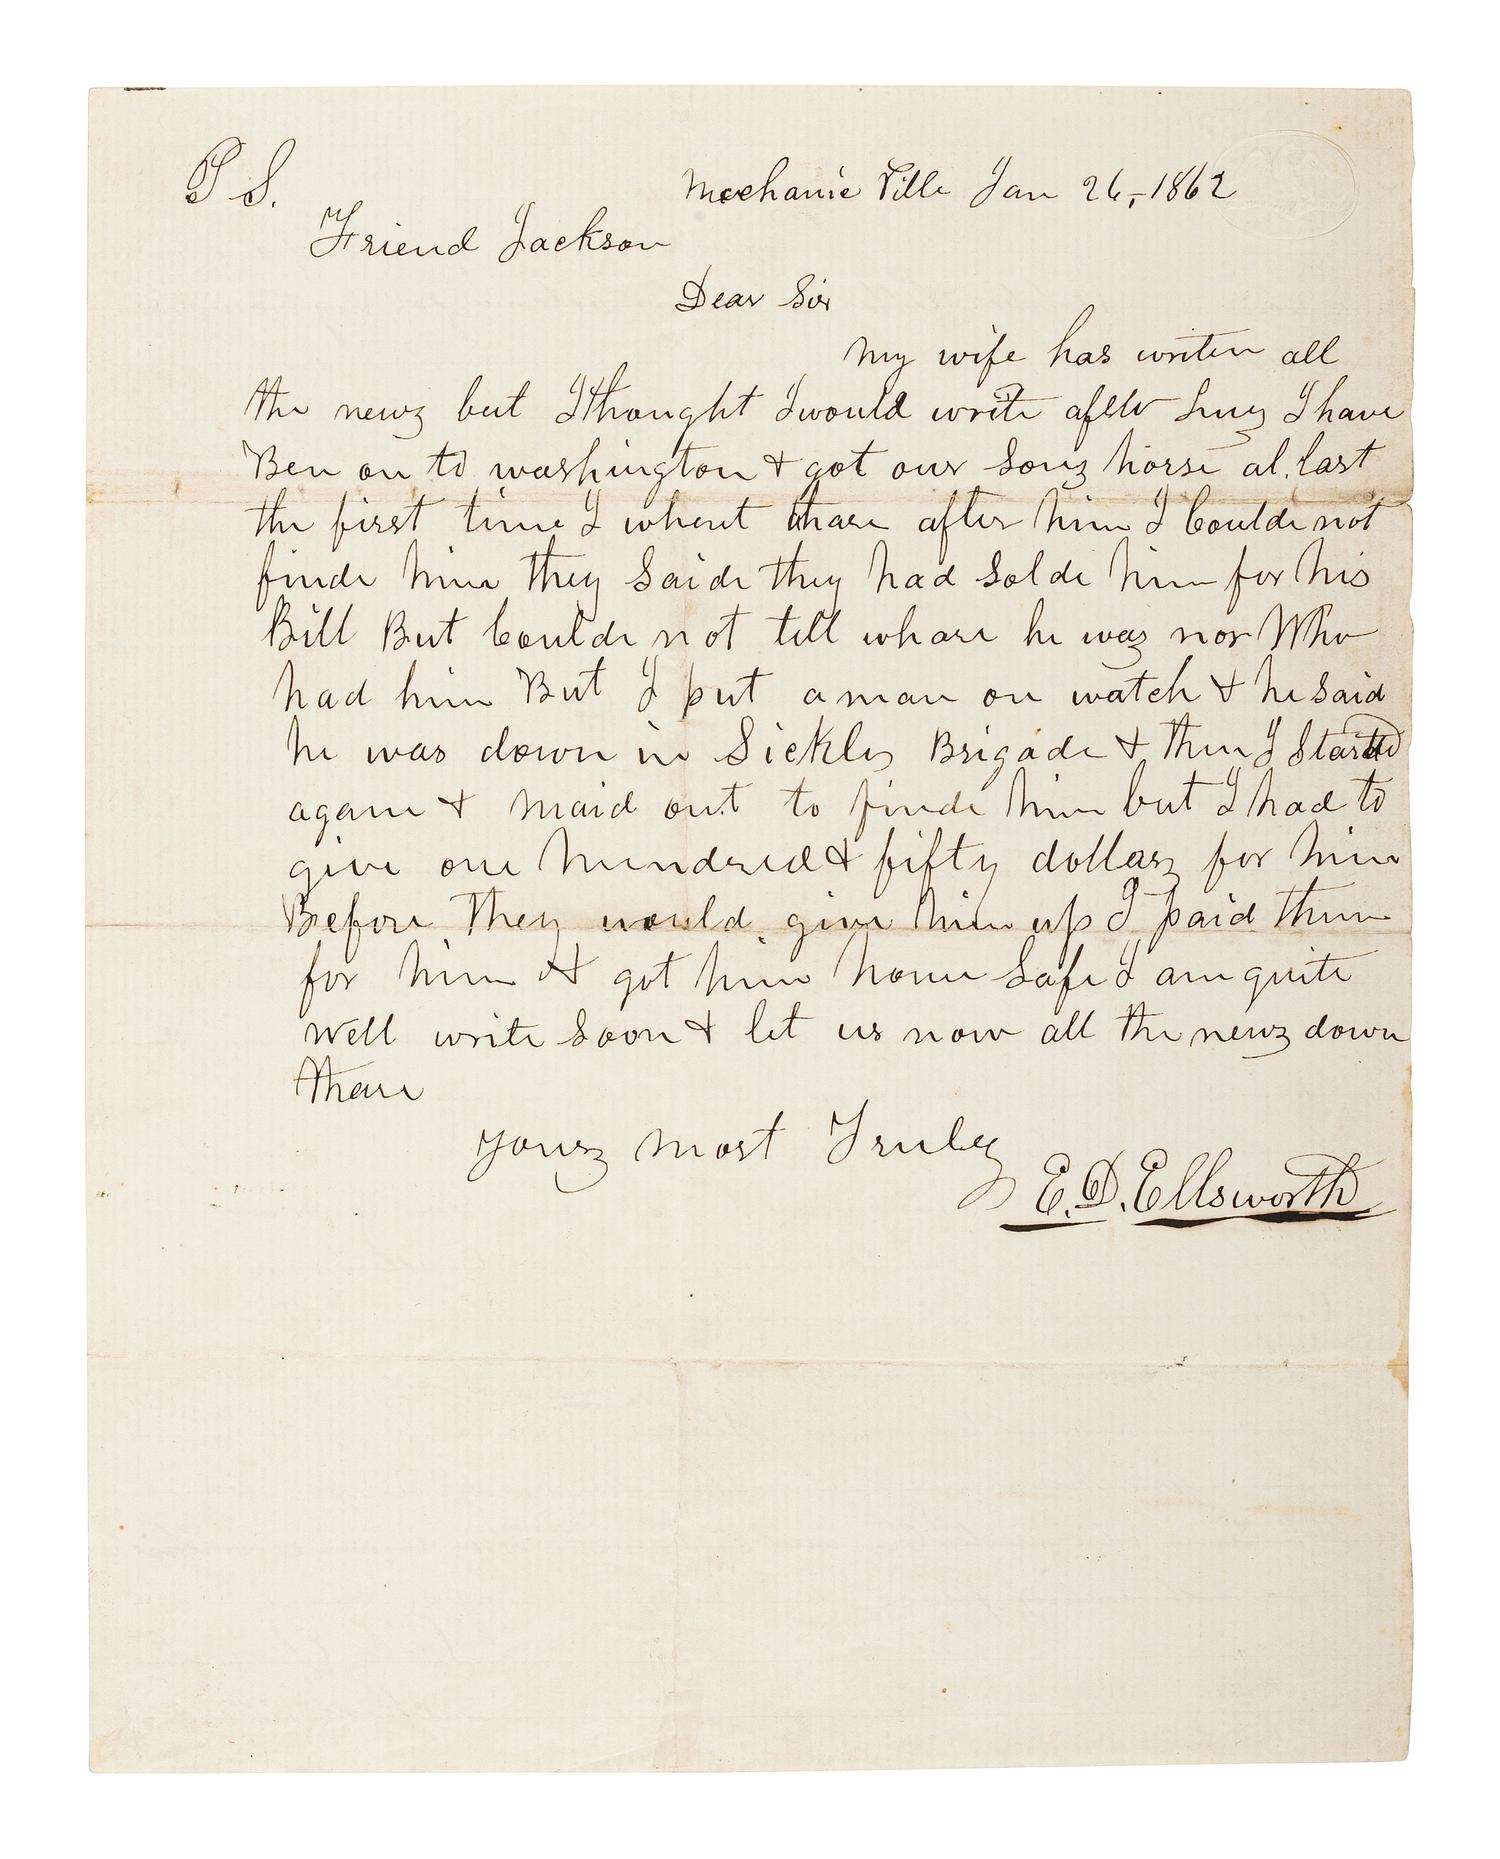 P S.
Mechanic Ville Jan 26,-1862
Friend Jackson
Dear Sir
my wife has writen all
the newz but I thought I would write a few linez I have
Ben on to washington & got our sonz horse at last
the first time I whent thare after him I Coulde not
finde him they saide they had solde him for his
Bill But Coulde not tell whare he waz nor Who
had him But I put a man on watch & he said
he was down in Sickles Brigade & then I started
again & maid out to finde him but I had to
give one hundred & fifty dollarz for him
Before They would give him up I paid them
for him & got him home safe I am quite
well write soon & let us now all the newz down
thare
yourz most Truley
E. D. Ellsworth